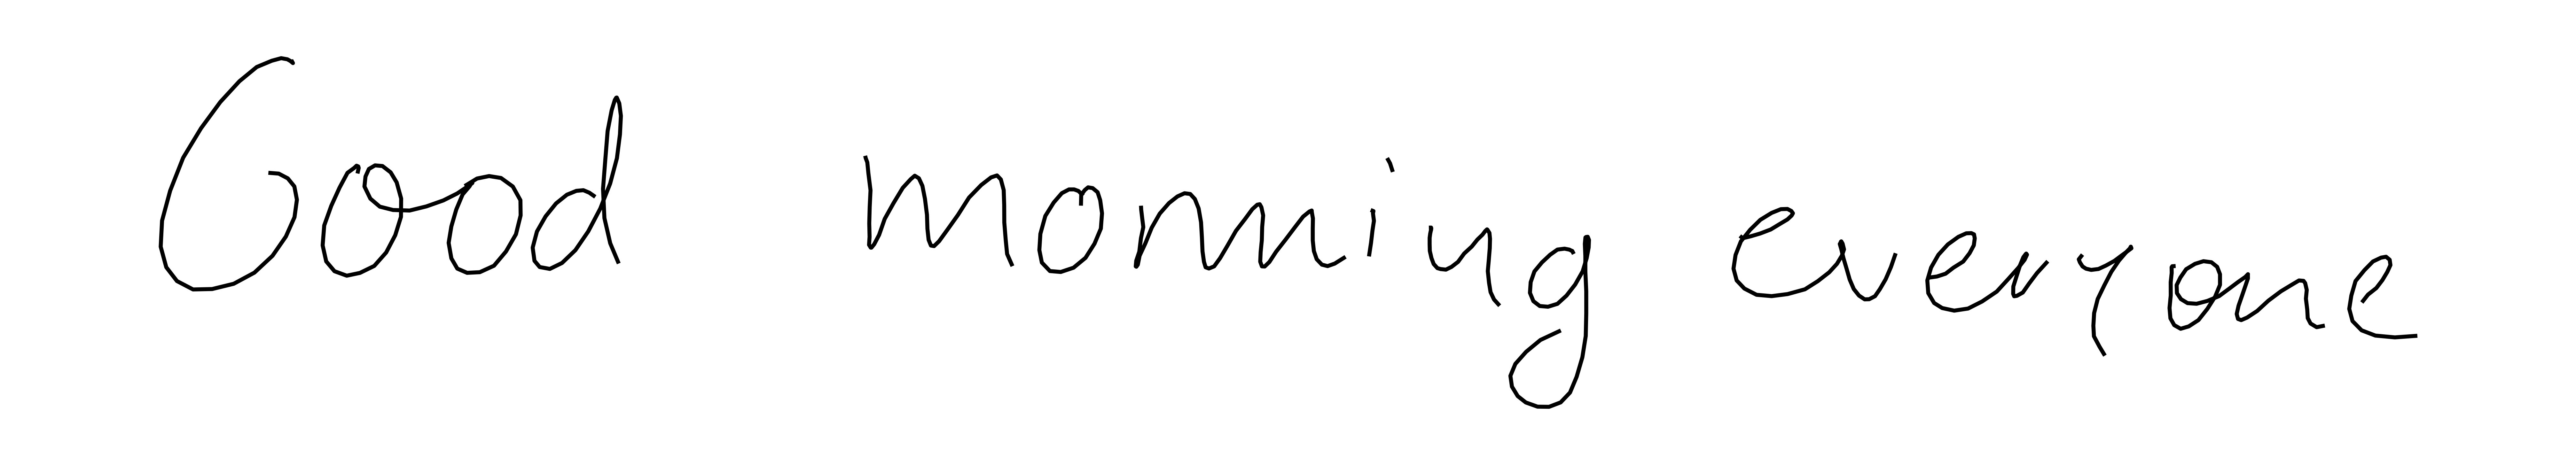 Good morning everyone